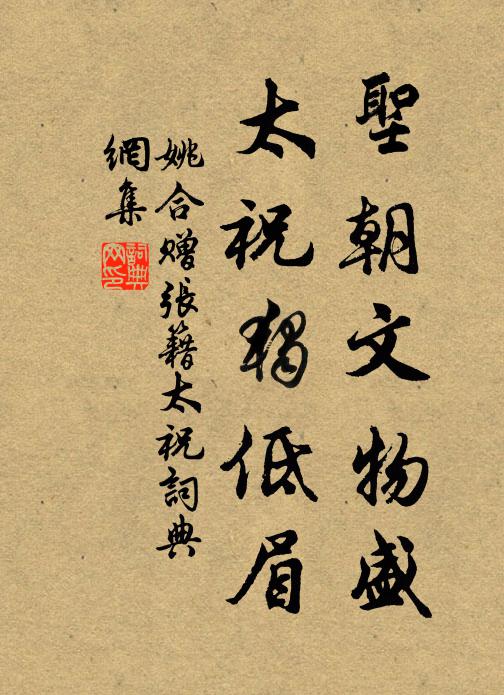 聖朝文物盛
太祝獨低眉
姚合贈張籍太祝詞典
網集
詞典
网印